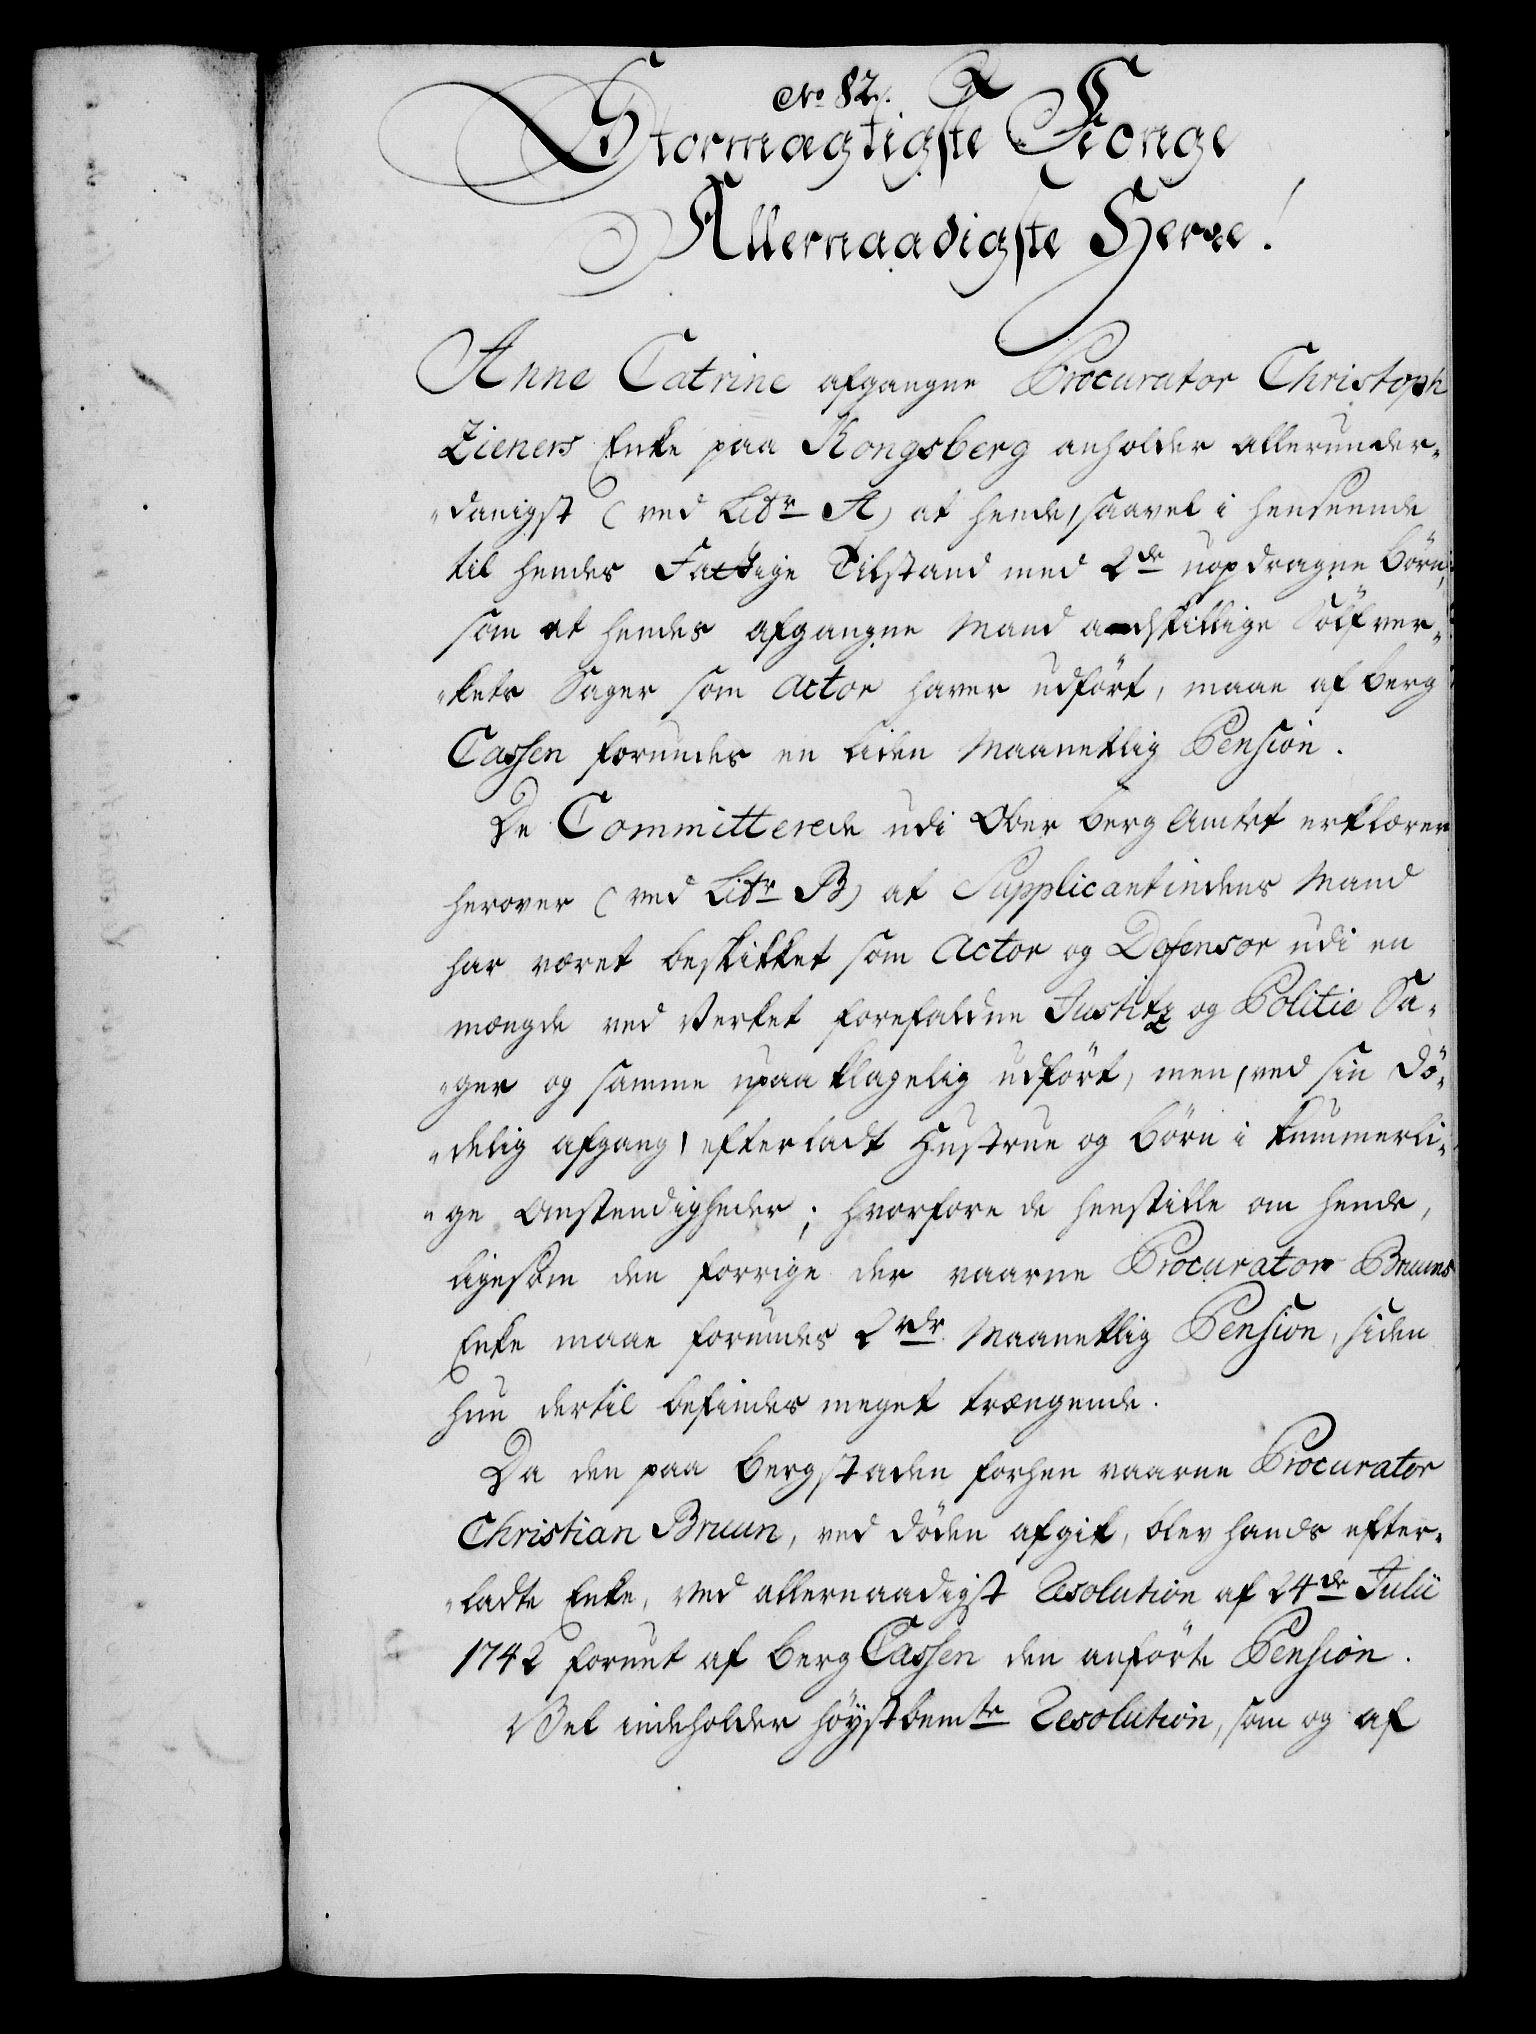 No 82.
Stormægtigste Konge
Allernaadigste Herre!
Anne Catrine afgangne Procurator Christoph
Zieners Enke paa Kongsberg anholder allerunder-
danigst (ved Litr A) at hende, saavel i henseende
til hendes Fattige Tilstand med 2de uopdragne Börn,
som at hendes afgangne Mand adskillige Sölfver-
kets Sager som Actor haver udfört, maae af berg
Cassen forundes en liden Maanetlig Pension.
De Committerede udi Ober berg Amtet erklærer
herover (ved Litr B) at Supplicantindens Mand
har været beskikket som Actor og Defensor udi en
mængde ved Verket forefaldne Justitz og Politie Sa-
ger og samme upaaklagelig udfört, men, ved sin Dö-
delig afgang, efterladt Hustrue og Börn i kummerli-
ge Omstendigheder; hvorfore de henstille om hende,
ligesom den forrige der værne Procurator Bruuns
Enke maae forundes 2 rdr Maanetlig Pension, siden
hun dertil befindes meget trængende.
Da den paa Bergstaden forhen værne Procurator
Christian Bruun, ved Döden afgik, blev hands efter-
ladte Enke, ved allernaadigst Resolution af 24de Julii
1742 forunt af Berg Cassen den anförte Pension.
Vel indeholder höystbemte Resolution, som og af